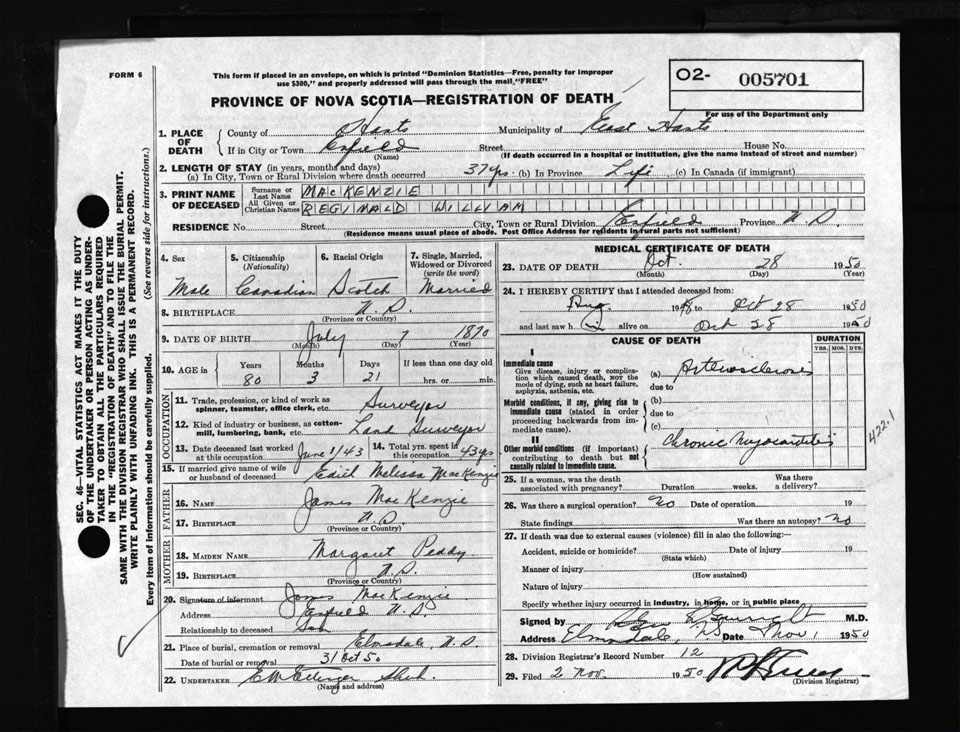 FORM 6
This form if placed in an envelope, on which is printed "Dominion Statistics—Free, penalty for improper
use $300," and properly addressed will pass through the mail, "FREE"
O2- 005701
For use of the Department only
PROVINCE OF NOVA SCOTIA—REGISTRATION OF DEATH
1. PLACE OF DEATH
County of Hants Municipality of East Hants
If in City or Town Enfield Street House No.
(Name) (If death occurred in a hospital or institution, give the name instead of street and number)
2. LENGTH OF STAY (in years, months and days)
(a) In City, Town or Rural Division where death occurred 37 yrs. (b) In Province Life (c) In Canada (if immigrant)
3. PRINT NAME OF DECEASED
Surname or Last Name MACKENZIE
All Given or Christian Names REGINALD WILLIAM
RESIDENCE No. Street City, Town or Rural Division Enfield Province N.S
(Residence means usual place of abode. Post Office Address for residents in rural parts not sufficient)
4. Sex
Male
5. Citizenship
(Nationality)
Canadian
6. Racial Origin
Scotch
7. Single, Married, Widowed or Divorced
(write the word)
Married
8. BIRTHPLACE N.S.
(Province or Country)
9. DATE OF BIRTH July 7 1870
(Month) (Day) (Year)
10. AGE in Years Months Days If less than one day old
80 3 21 hrs. or min.
OCCUPATION
11. Trade, profession, or kind of work as
spinner, teamster, office clerk, etc. Surveyor
12. Kind of industry or business, as cotton-
mill, lumbering, bank, etc. Land Surveyor
13. Date deceased last worked at this occupation June 1/43
14. Total yrs. spent in this occupation 43 yrs
15. If married give name of wife
or husband of deceased Edith Melissa MacKenzie
FATHER
16. NAME James MacKenzie
17. BIRTHPLACE N.S.
(Province or Country)
MOTHER
18. MAIDEN NAME Margaret Peddy
19. BIRTHPLACE N.S.
(Province or Country)
20. Signature of informant James MacKenzie
Address Enfield N.S
Relationship to deceased Son
21. Place of burial, cremation or removal Elmsdale, N.S.
Date of burial or removal 31 Oct 50
22. UNDERTAKER
(Name and address)
MEDICAL CERTIFICATE OF DEATH
23. DATE OF DEATH Oct. 28 1950
(Month) (Day) (Year)
24. I HEREBY CERTIFY that I attended deceased from:
Aug. 19 to Oct 28 1950
and last saw him alive on Oct 28 1950
CAUSE OF DEATH
DURATION
YRS. MOS. DYS.
I
Immediate cause
Give disease, injury or compli-
cation which caused death, NOT the
mode of dying, such as heart failure,
asphyxia, asthenia, etc.
(a) Arteriosclerosis
due to
Morbid conditions, if any, giving rise to
immediate cause (stated in order
proceeding backwards from im-
mediate cause).
(b)
due to
(c)
II
Other morbid conditions (if important)
contributing to death but not
causally related to immediate cause.
Chronic Myocarditis
422.1
25. If a woman, was the death
associated with pregnancy? Duration weeks. Was there a delivery?
26. Was there a surgical operation? No Date of operation 19
State findings Was there an autopsy? No
27. If death was due to external causes (violence) fill in also the following:—
Accident, suicide or homicide? Date of injury 19
(State which)
Manner of injury
(How sustained)
Nature of injury
Specify whether injury occurred in industry, in home, or in public place
Signed by M.D.
Address Elmsdale, NS Date Nov 1 1950
28. Division Registrar's Record Number 12
29. Filed 2 Nov. 1950
(Division Registrar)
SEC. 46—VITAL STATISTICS ACT MAKES IT THE DUTY
OF THE UNDERTAKER OR PERSON ACTING AS UNDER-
TAKER TO OBTAIN ALL THE PARTICULARS REQUIRED
IN THE "REGISTRATION OF DEATH" AND TO FILE THE
SAME WITH THE DIVISION REGISTRAR WHO SHALL ISSUE THE BURIAL PERMIT.
WRITE PLAINLY WITH UNFADING INK. THIS IS A PERMANENT RECORD.
Every item of information should be carefully supplied. (See reverse side for instructions.)